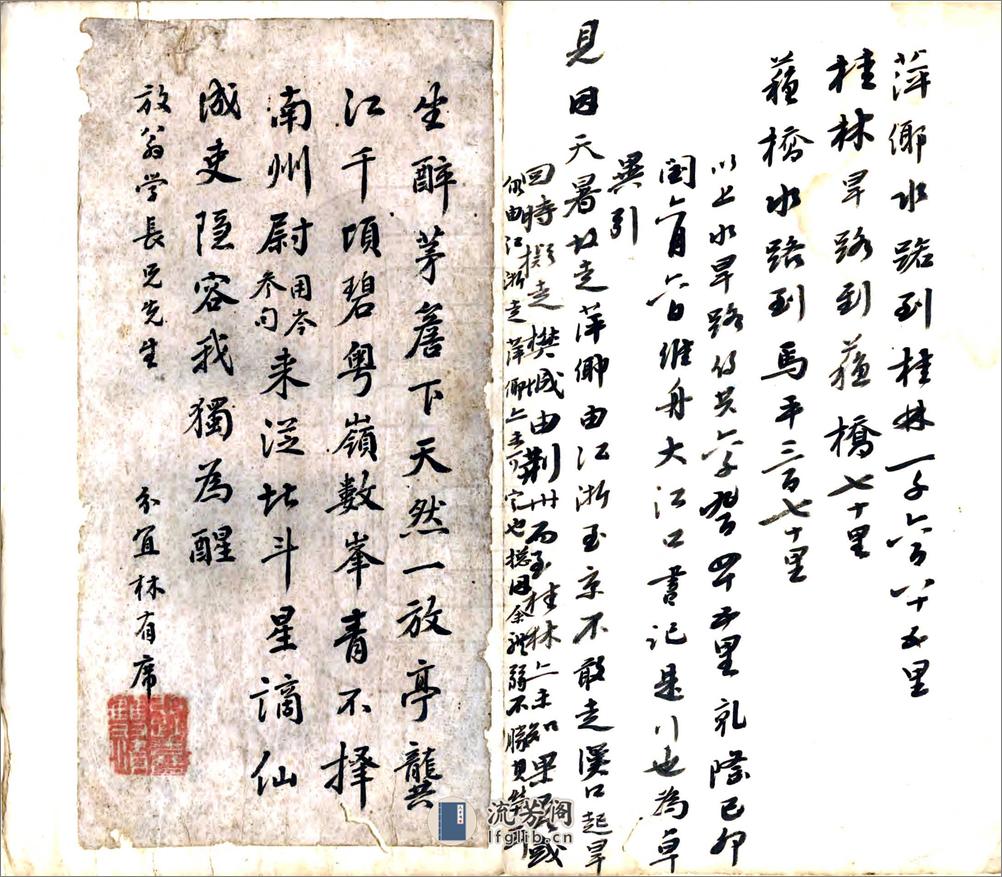 萍鄉水路到桂林一千六百八十五里
桂林旱路到蘓橋七十里
蘓橋水路到馬平三百七十里
以上水旱路伩共六千四十五里乾隆己卯
閏六月六日維舟大江口書記是行也為卓
異引
見因天暑故走萍鄉由江浙至京不敢走漢口起旱
回時擬走樊城由荆州而至桂林上未知果否或
仍由江浙走萍鄉上未可定也揔因余體弱不勝
坐醉茅簷下天然一放亭龔
江千頃碧粤嶺數峯青不择
南州尉用岑参句来從北斗星謫仙
成吏隐容我獨為醒
放翁学長兄先生
分宜林有席
流芳阁
lfglib.cn